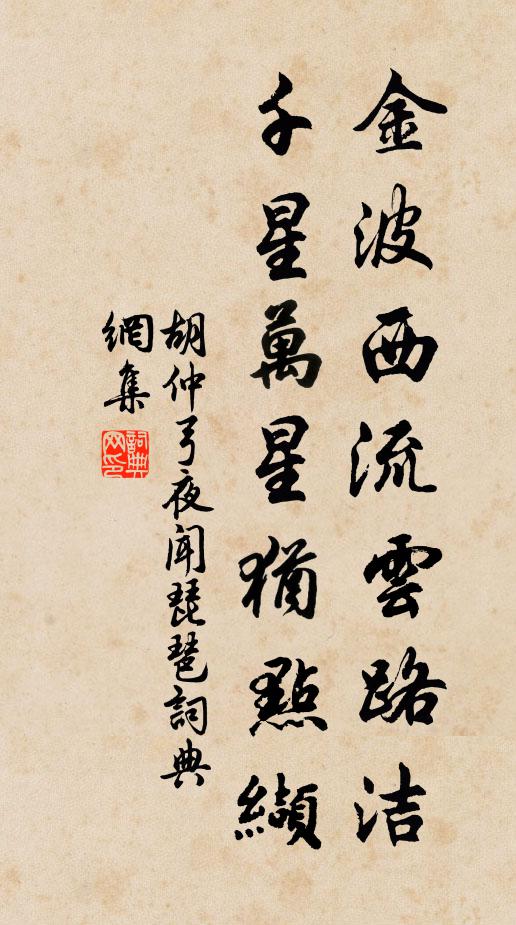 金波西流雲路洁
千星萬星猶點纈
胡仲弓夜聞琵琶詞典
網集
詞典
网印